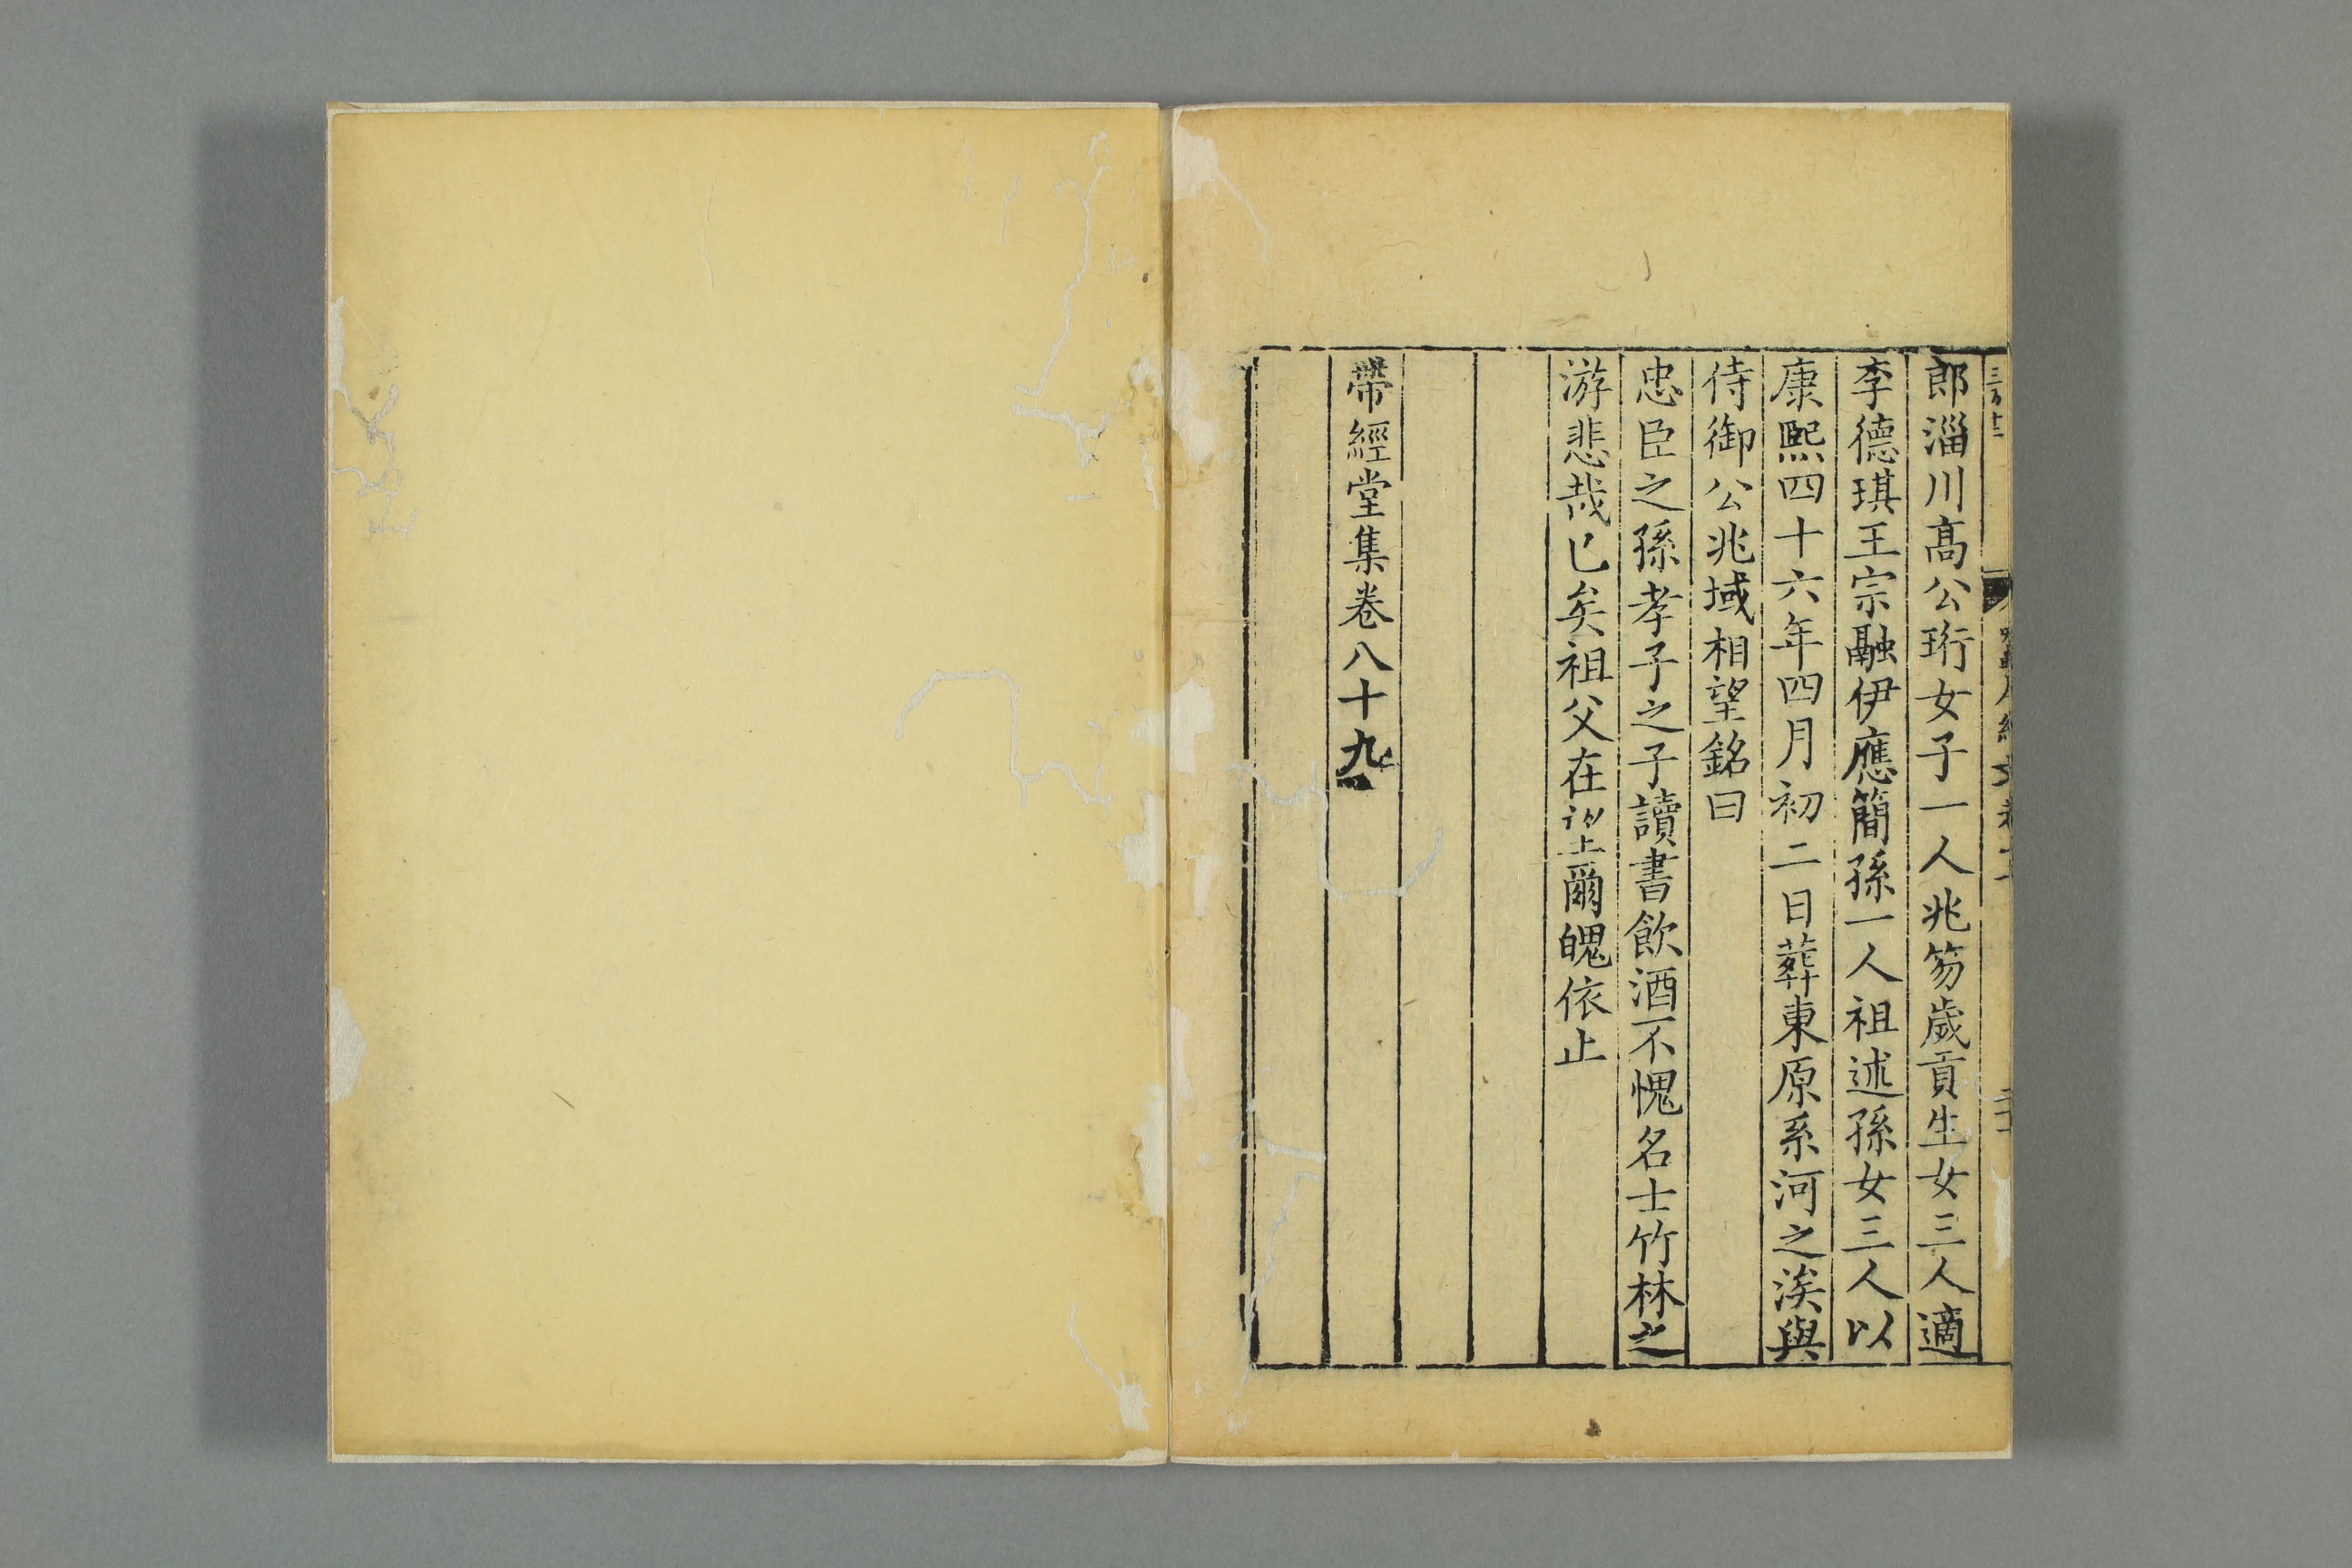 郎淄川高公珩女子一人兆笏歲貢生女三人適
李德琪王宗融伊應簡孫一人祖述孫女三人以
康熙四十六年四月初二日葬東原系河之涘與
侍御公兆域相望銘曰
忠臣之孫孝子之子讀書飲酒不愧名士竹林之
游悲哉已矣祖父在爾魄依止
帶經堂集卷八十九